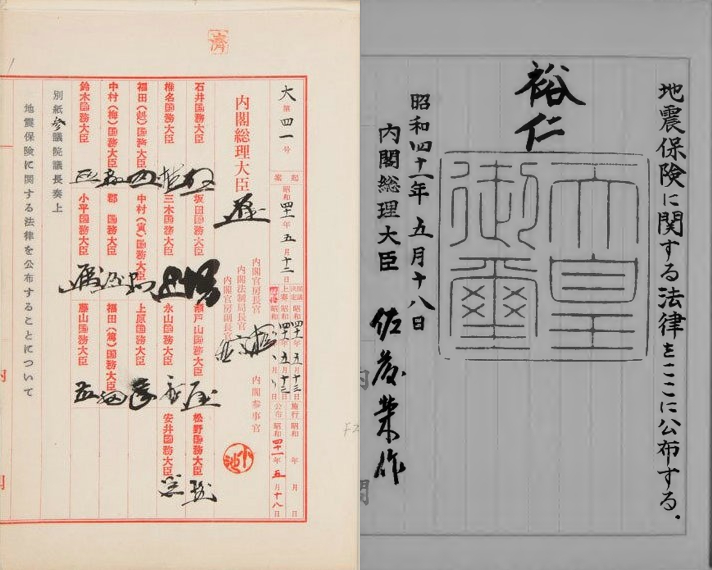 大第四一号
起案 昭和四十一年五月十二日
閣議決定 昭和四十一年五月十三日 施行 昭和 年 月 日
上奏 昭和四十一年五月十三日 公布 昭和四十一年五月十八日
内閣総理大臣
内閣官房長官
内閣法制局長官
内閣官房副長官
内閣参事官
石井国務大臣 坂田国務大臣 瀬戸山国務大臣 松野国務大臣
椎名国務大臣 三木国務大臣 永山国務大臣 安井国務大臣
福田(赳)国務大臣 中村(寅)国務大臣 上原国務大臣
中村(梅)国務大臣 郡国務大臣 福田(篤)国務大臣
鈴木国務大臣 小平国務大臣 藤山国務大臣
別紙参議院議長奏上
地震保険に関する法律を公布することについて
地震保険に関する法律をここに公布する。
裕仁
天皇
御璽
昭和四十一年五月十八日
内閣総理大臣 佐藤榮作